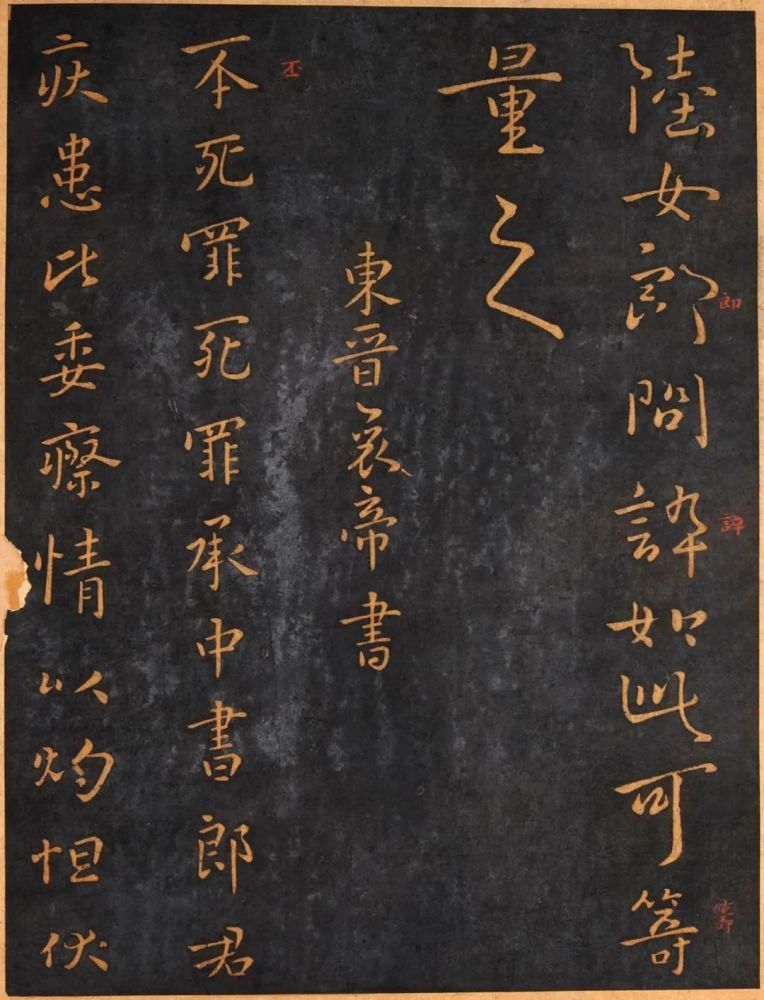 陸女郎問誶如此可籌
量之
東晉哀帝書
丕死罪死罪承中書郎君
疾患比委瘵情以灼怛伏
郎
誶
籌
丕